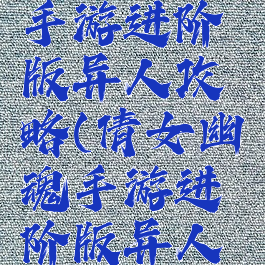 手游进阶
版异人攻
略(倩女幽
魂手游进
阶版异人